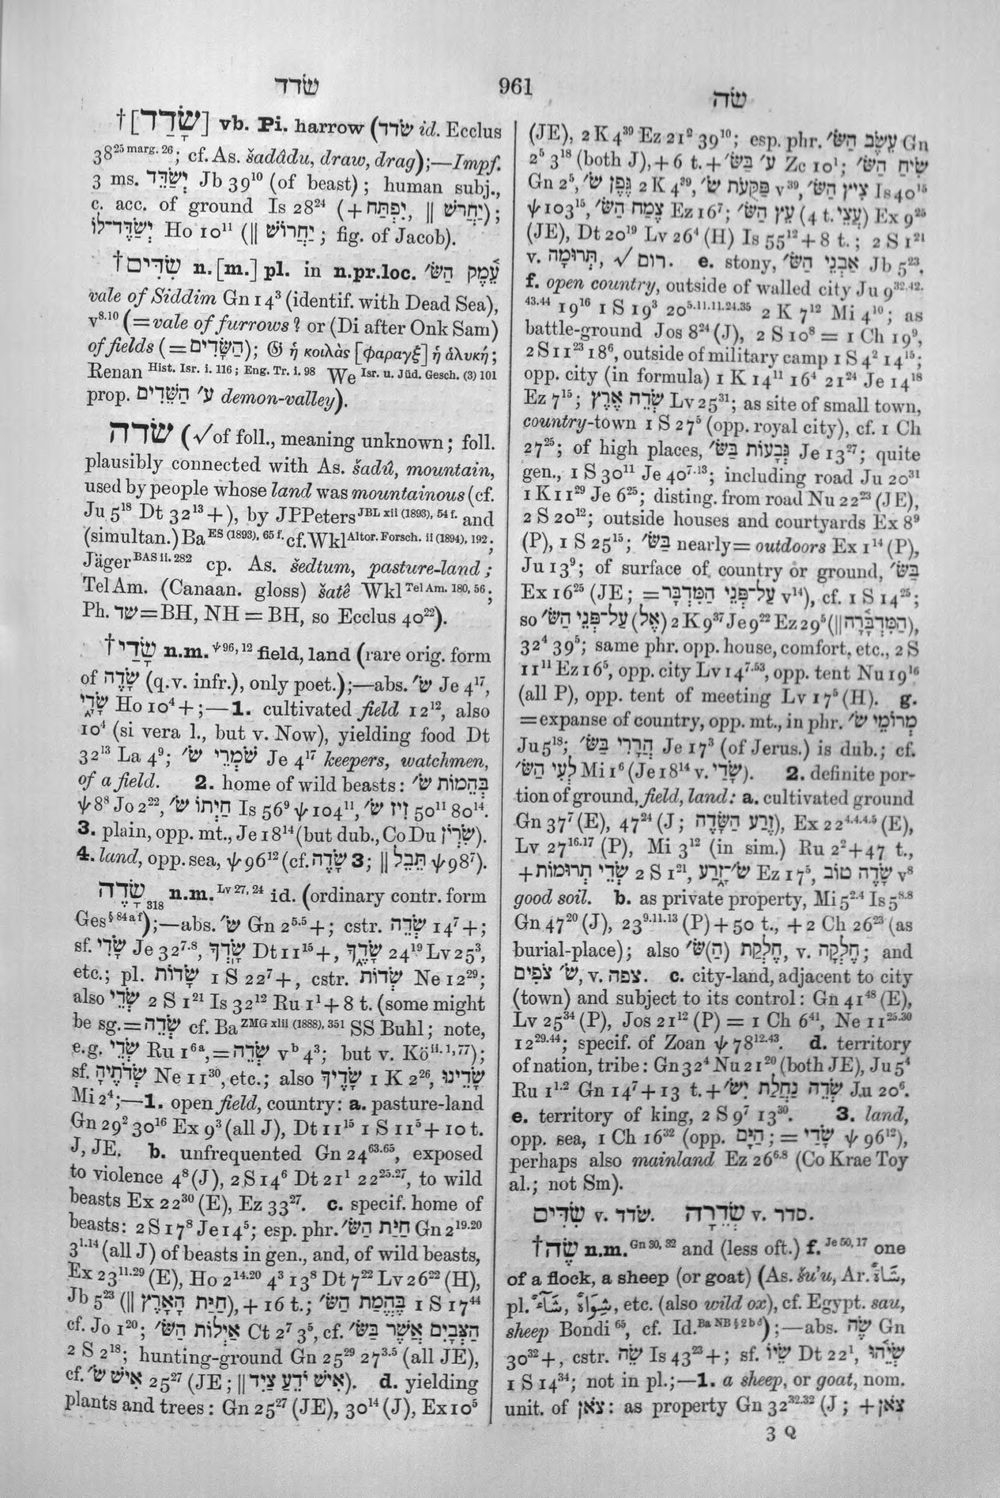 שׂדד
961
שׂה
†[שָׂדַד] vb. Pi. harrow (שׂדד id. Ecclus
38 25 marg. 26; cf. As. šadâdu, draw, drag);—Impf.
3 ms. יְשַׂדֵּד Jb 39 10 (of beast); human subj.,
c. acc. of ground Is 28 24 (+יְפַתַּח, ‖ יַחֲרשׁ);
יְשַׂדֶּד־לוֹ Ho 10 11 (‖ יַחֲרוֹשׁ; fig. of Jacob).
†שִׂדִּים n.[m.] pl. in n.pr.loc. עֵמֶק הַשּׂ׳
vale of Siddim Gn 14 3 (identif. with Dead Sea),
v 8.10 (=vale of furrows? or (Di after Onk Sam)
of fields (=הַשָּׂדִים); 𝔊 ἡ κοιλὰς [φαραγξ] ἡ ἁλυκή;
Renan Hist. Isr. i. 116; Eng. Tr. i. 98 We Isr. u. Jüd. Gesch. (3) 101
prop. ע׳ הַשֵּׁדִים demon-valley).
שׂדה (√of foll., meaning unknown; foll.
plausibly connected with As. šadû, mountain,
used by people whose land was mountainous (cf.
Ju 5 18 Dt 32 13 +), by JPPeters JBL xii (1893), 54 f. and
(simultan.) Ba ES (1893), 65 f. cf. Wkl Altor. Forsch. ii (1894), 192;
Jäger BAS ii. 282 cp. As. šedtum, pasture-land;
TelAm. (Canaan. gloss) šatê Wkl Tel Am. 180, 56;
Ph. שד=BH, NH = BH, so Ecclus 40 22).
†שָׂדַי n.m. ψ 96, 12 field, land (rare orig. form
of שָׂדֶה (q.v. infr.), only poet.);—abs. שׂ׳ Je 4 17,
שָׂדָי Ho 10 4 +;—1. cultivated field 12 12, also
10 4 (si vera l., but v. Now), yielding food Dt
32 13 La 4 9; שֹׁמְרֵי שׂ׳ Je 4 17 keepers, watchmen,
of a field. 2. home of wild beasts: בַּהֲמוֹת שׂ׳
ψ 8 8 Jo 2 22, חַיְתוֹ שׂ׳ Is 56 9 ψ 104 11, זִיז שׂ׳ 50 11 80 14.
3. plain, opp. mt., Je 18 14 (but dub., Co Du שִׂרְיֹן).
4. land, opp. sea, ψ 96 12 (cf. שָׂדֶה 3; ‖ תֵּבֵל ψ 98 7).
שָׂדֶה 318 n.m. Lv 27, 24 id. (ordinary contr. form
Ges § 84 a f);—abs. שׂ׳ Gn 2 5.5 +; cstr. שְׂדֵה 14 7 +;
sf. שָׂדִי Je 32 7.8, שָׂדְךָ Dt 11 15 +, שָׂדֶךָ 24 19 Lv 25 3,
etc.; pl. שָׂדוֹת 1 S 22 7 +, cstr. שְׂדוֹת Ne 12 29;
also שְׂדֵי 2 S 1 21 Is 32 12 Ru 1 1 + 8 t. (some might
be sg.=שְׂדֵה cf. Ba ZMG xlii (1888), 351 SS Buhl; note,
e.g. שְׂדֵי Ru 1 6a, =שְׂדֵה v b 4 3; but v. Kö ii. 1, 77);
sf. שְׂדֹתֶיהָ Ne 11 30, etc.; also שָׂדֶיךָ 1 K 2 26, שָׂדֵינוּ
Mi 2 4;—1. open field, country: a. pasture-land
Gn 29 2 30 16 Ex 9 3 (all J), Dt 11 15 1 S 11 5 + 10 t.
J, JE. b. unfrequented Gn 24 63.65, exposed
to violence 4 8 (J), 2 S 14 6 Dt 21 1 22 25.27, to wild
beasts Ex 22 30 (E), Ez 33 27. c. specif. home of
beasts: 2 S 17 8 Je 14 5; esp. phr. חַיַּת הַשּׂ׳ Gn 2 19.20
3 1.14 (all J) of beasts in gen., and, of wild beasts,
Ex 23 11.29 (E), Ho 2 14.20 4 3 13 8 Dt 7 22 Lv 26 22 (H),
Jb 5 23 (‖ חַיַּת הָאָרֶץ), + 16 t.; בֶּהֱמַת הַשּׂ׳ 1 S 17 44
cf. Jo 1 20; אַיְלוֹת הַשּׂ׳ Ct 2 7 3 5, cf. הַצְּבָיִם אֲשֶׁר בַּשּׂ׳
2 S 2 18; hunting-ground Gn 25 29 27 3.5 (all JE),
cf. אִישׁ שׂ׳ 25 27 (JE; ‖ אִישׁ יֹדֵעַ צַיִד). d. yielding
plants and trees: Gn 25 27 (JE), 30 14 (J), Ex 10 5
(JE), 2 K 4 39 Ez 21 2 39 10; esp. phr. עֵשֶׂב הַשּׂ׳ Gn
2 5 3 18 (both J), + 6 t. + ע׳ בַּשּׂ׳ Zc 10 1; שִׂיחַ הַשּׂ׳
Gn 2 5, גֶּפֶן שׂ׳ 2 K 4 39, פַּקֻּעֹת שׂ׳ v 39, צִיץ הַשּׂ׳ Is 40 15
ψ 103 15, צֶמַח הַשּׂ׳ Ez 16 7; עֵץ הַשּׂ׳ (4 t. עֲצֵי) Ex 9 25
(JE), Dt 20 19 Lv 26 4 (H) Is 55 12 + 8 t.; 2 S 1 21
v. תְּרוּמָה, √ רום. e. stony, אַבְנֵי הַשּׂ׳ Jb 5 23.
f. open country, outside of walled city Ju 9 32.42.
43.44 19 16 1 S 19 3 20 5.11.11.24.35 2 K 7 12 Mi 4 10; as
battle-ground Jos 8 24 (J), 2 S 10 8 = 1 Ch 19 9,
2 S 11 23 18 6, outside of military camp 1 S 4 2 14 15;
opp. city (in formula) 1 K 14 11 16 4 21 24 Je 14 18
Ez 7 15; שְׂדֵה אֶרֶץ Lv 25 31; as site of small town,
country-town 1 S 27 5 (opp. royal city), cf. 1 Ch
27 25; of high places, גְּבָעוֹת בַּשּׂ׳ Je 13 27; quite
gen., 1 S 30 11 Je 40 7.13; including road Ju 20 31
1 K 11 29 Je 6 25; disting. from road Nu 22 23 (JE),
2 S 20 12; outside houses and courtyards Ex 8 9
(P), 1 S 25 15; בַּשּׂ׳ nearly= outdoors Ex 1 14 (P),
Ju 13 9; of surface of country or ground, בַּשּׂ׳
Ex 16 25 (JE; =עַל־פְּנֵי הַמִּדְבָּר v 14), cf. 1 S 14 25;
so עַל־פְּנֵי הַשּׂ׳ (אֶל) 2 K 9 37 Je 9 22 Ez 29 5 (‖הַמִּדְבָּרָה),
32 4 39 5; same phr. opp. house, comfort, etc., 2 S
11 11 Ez 16 5, opp. city Lv 14 7.53, opp. tent Nu 19 16
(all P), opp. tent of meeting Lv 17 5 (H). g.
=expanse of country, opp. mt., in phr. מְרוֹמֵי שׂ׳
Ju 5 18; הֲרָרִי בַּשּׂ׳ Je 17 3 (of Jerus.) is dub.; cf.
לְעִי הַשּׂ׳ Mi 1 6 (Je 18 14 v. שָׂדַי). 2. definite por-
tion of ground, field, land: a. cultivated ground
Gn 37 7 (E), 47 24 (J; זֶרַע הַשָּׂדֶה), Ex 22 4.4.4.5 (E),
Lv 27 16.17 (P), Mi 3 12 (in sim.) Ru 2 2 + 47 t.,
+שְׂדֵי תְרוּמוֹת 2 S 1 21, שְׂ׳־זָרַע Ez 17 5, שָׂדֶה טוֹב v 8
good soil. b. as private property, Mi 5 2.4 Is 5 8.8
Gn 47 20 (J), 23 9.11.13 (P) + 50 t., + 2 Ch 26 23 (as
burial-place); also חֶלְקַת (הַ)שּׂ׳, v. חֶלְקָה; and
שׂ׳ צֹפִים, v. צפה. c. city-land, adjacent to city
(town) and subject to its control: Gn 41 48 (E),
Lv 25 34 (P), Jos 21 12 (P) = 1 Ch 6 41, Ne 11 25.30
12 29.44; specif. of Zoan ψ 78 12.43. d. territory
of nation, tribe: Gn 32 4 Nu 21 20 (both JE), Ju 5 4
Ru 1 1.2 Gn 14 7 + 13 t. + שְׂדֵה נַחֲלַת יִשׂ׳ Ju 20 6.
e. territory of king, 2 S 9 7 13 30. 3. land,
opp. sea, 1 Ch 16 32 (opp. הַיָּם; = שָׂדַי ψ 96 12),
perhaps also mainland Ez 26 6.8 (Co Krae Toy
al.; not Sm).
שִׂדִּים v. שׂדד. שְׂדֵרָה v. סדר.
†שֶׂה n.m. Gn 30, 32 and (less oft.) f. Je 50, 17 one
of a flock, a sheep (or goat) (As. šu'u, Ar. شَاةٌ,
pl. شَآءٌ, شِوَاهٌ, etc. (also wild ox), cf. Egypt. sau,
sheep Bondi 65, cf. Id. Ba NB § 2 b δ);—abs. שֶׂה Gn
30 32 +, cstr. שֵׂה Is 43 23 +; sf. שֵׂיוֹ Dt 22 1, שְׂיֵהוּ
1 S 14 34; not in pl.;—1. a sheep, or goat, nom.
unit. of צֹאן: as property Gn 32 32.32 (J; +צֹאן
3 Q